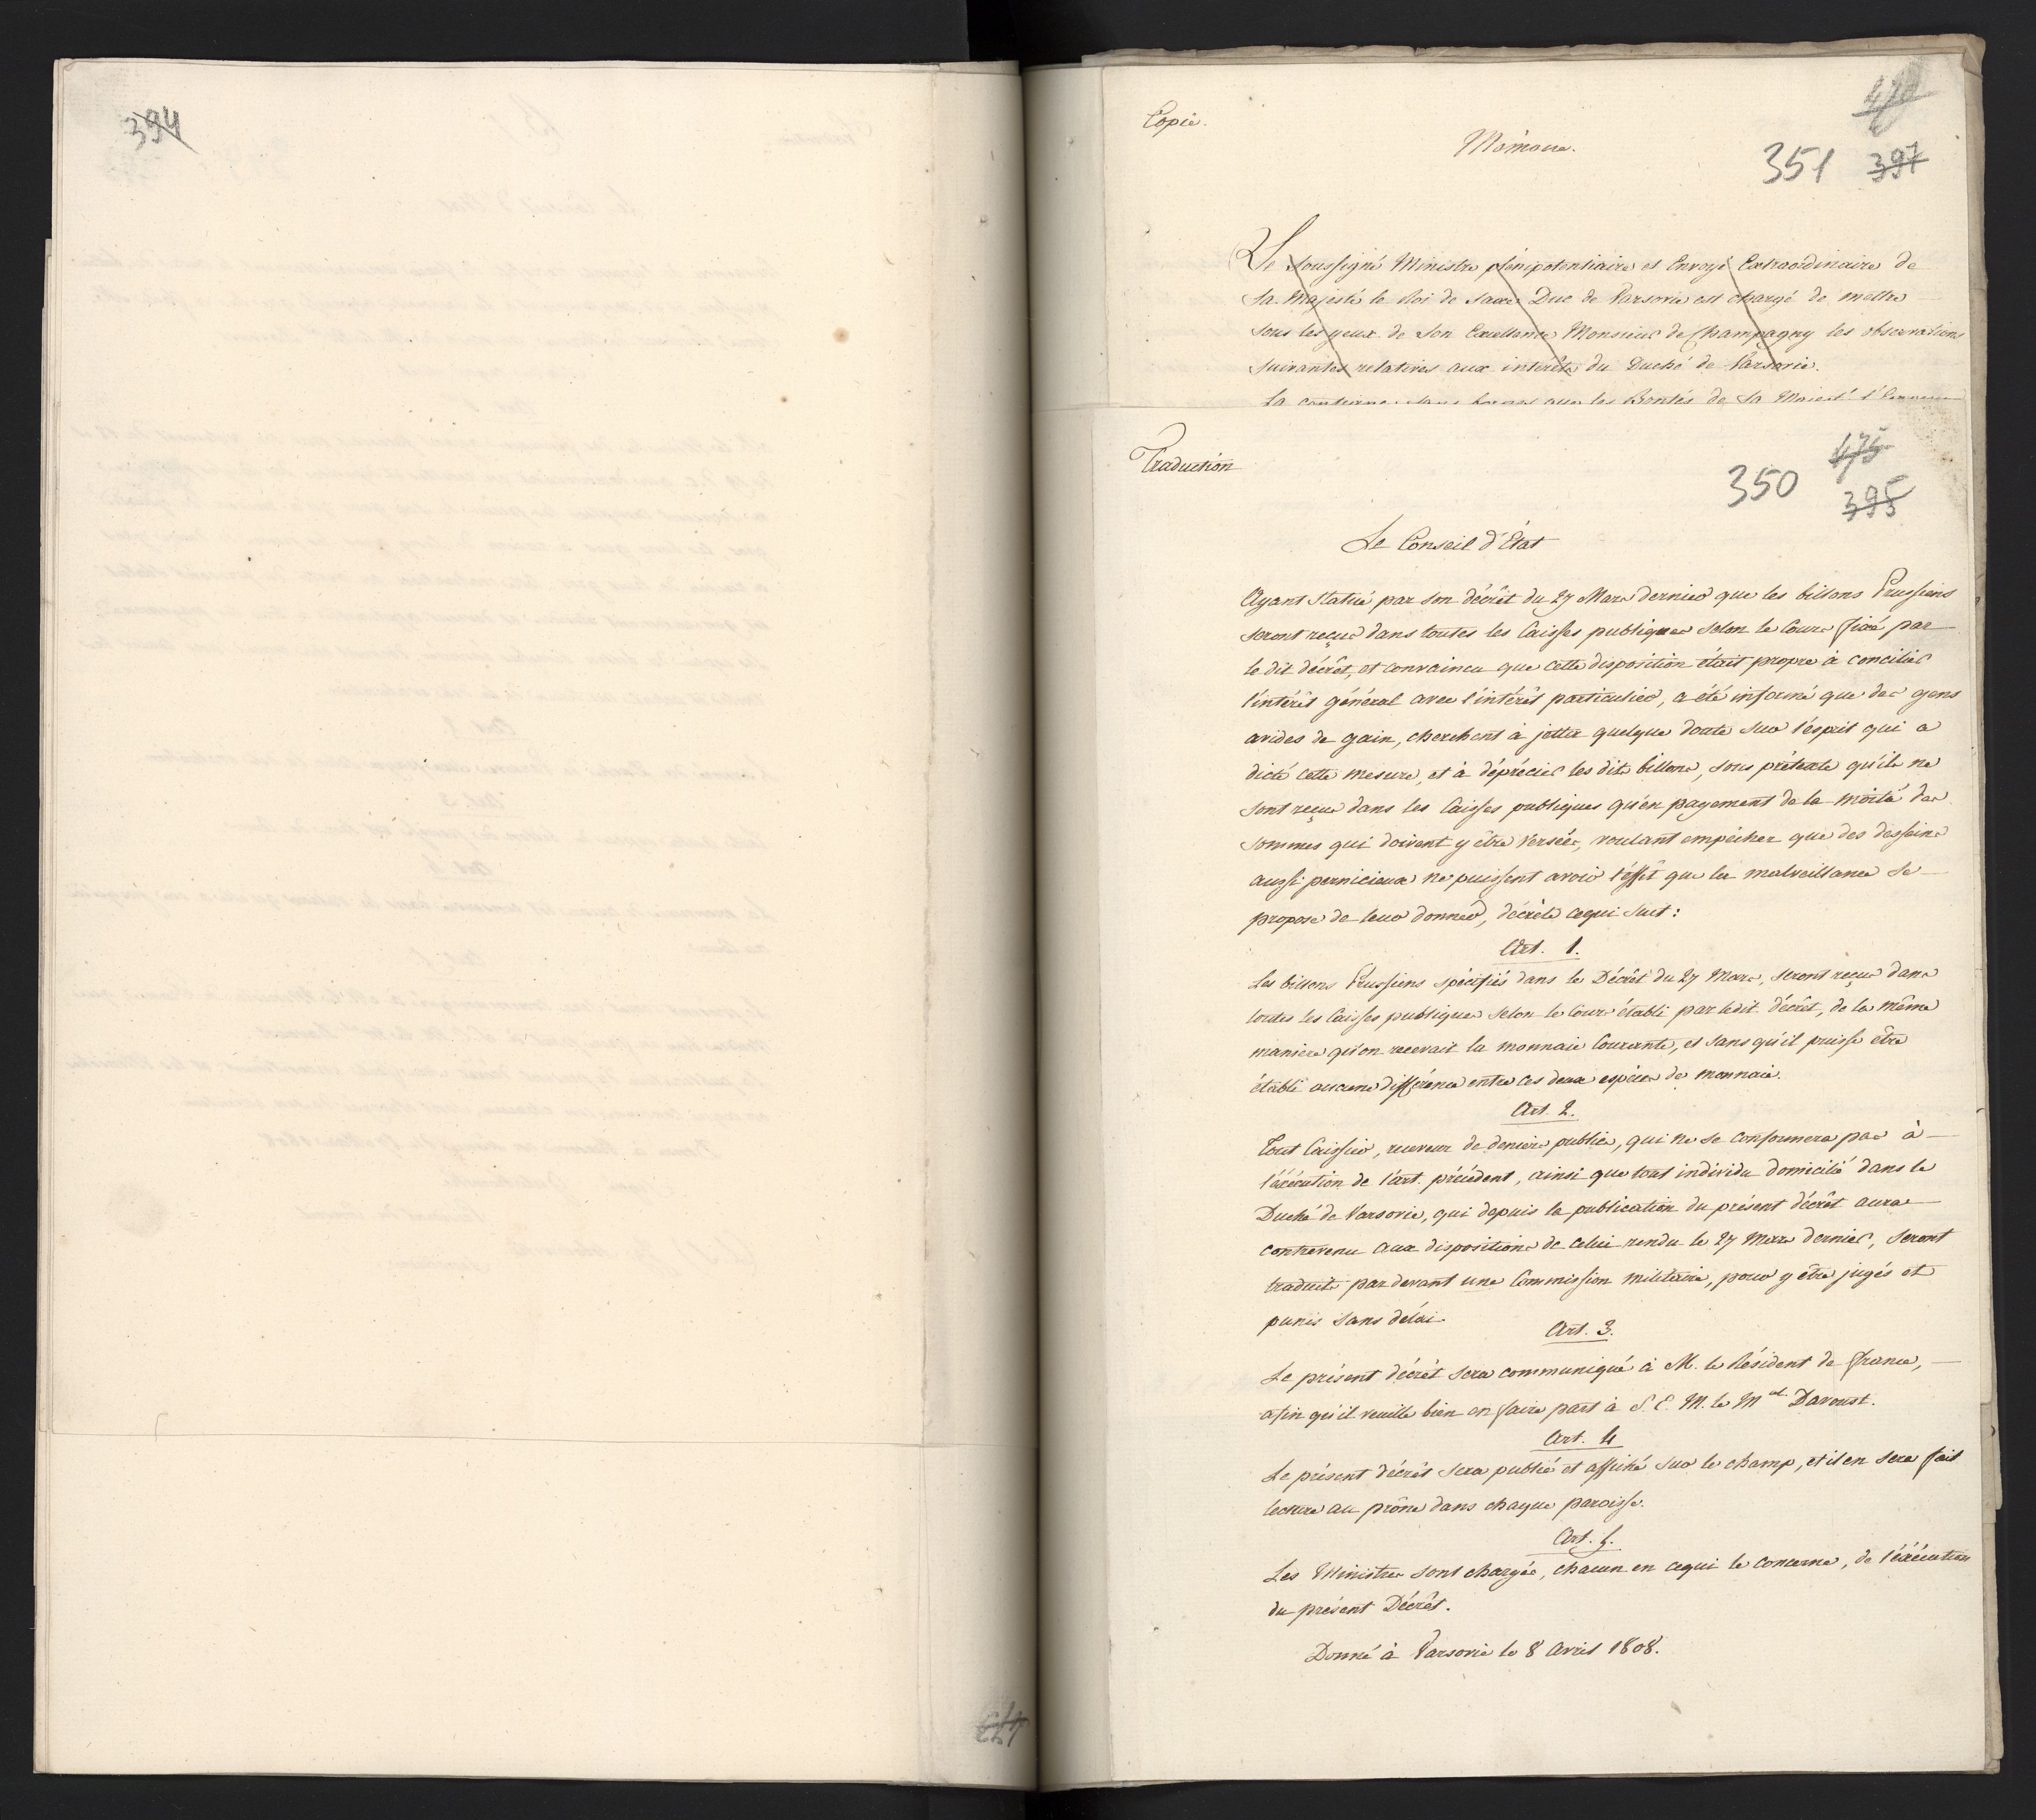 394
Copie.
470
Mémoire.
351 397
Le Soussigné Ministre plénipotentiaire et Envoyé Extraordinaire de
Sa Majesté le Roi de Saxe Duc de Varsovie est chargé de mettre
sous les yeux de Son Excellence Monsieur de Champagny les observations
suivantes relatives aux intérêts du Duché de Varsovie.
La confiance sans bornes que les Bontés de Sa Majesté l'Empereur
Traduction
475
350
395
Le Conseil d'Etat
Ayant Statué par son décrêt du 27 Mars dernier que les billons Prussiens
seront reçus dans toutes les Caisses publiques selon le Cours fixé par
le dit décrêt, et convaincu que cette disposition était propre à concilier
l'intérêt général avec l'intérêt particulier, a été informé que des gens
avides de gain, cherchent à jetter quelque doute sur l'esprit qui a
dicté cette mesure, et à déprécier les dits billons, sous prétexte qu'ils ne
sont reçus dans les Caisses publiques qu'en payement de la moitié des
sommes qui doivent y être versées, voulant empêcher que des desseins
aussi pernicieux ne puissent avoir l'éffêt que la malveillance se
propose de leur donner, décrète cequi suit:
Art. 1.
Les billons Prussiens spécifiés dans le Décrêt du 27 Mars, seront reçus dans
toutes les Caisses publiques selon le Cours établi par ledit décrêt, de la même
maniere qu'on recevait la monnaie Courante, et sans qu'il puisse être
établi aucune différence entre ces deux espèces de monnaie.
Art. 2.
Tout Caissier, receveur de deniers publics, qui ne se conformera pas à
l'éxécution de l'art. précédent, ainsi que tout individu domicilié dans le
Duché de Varsovie, qui depuis la publication du présent décrêt aura
contrevenu aux dispositions de celui rendu le 27 Mars dernier, seront
traduits par devant une Commission militaire, pour y être jugés et
punis sans délai.
Art. 3.
Le présent décrêt sera communiqué à M. le Résident de france,
afin qu'il veuille bien en faire part à S. E. M. le Mal. Davoust.
Art. 4
Le présent décrêt sera publié et affiché sur le champ, et il en sera fait
lecture au prône dans chaque paroisse.
Art. 5.
Les Ministres sont chargés, chacun en cequi le concerne, de l'éxécution
du présent Décrêt.
Donné à Varsovie le 8 Avril 1808.